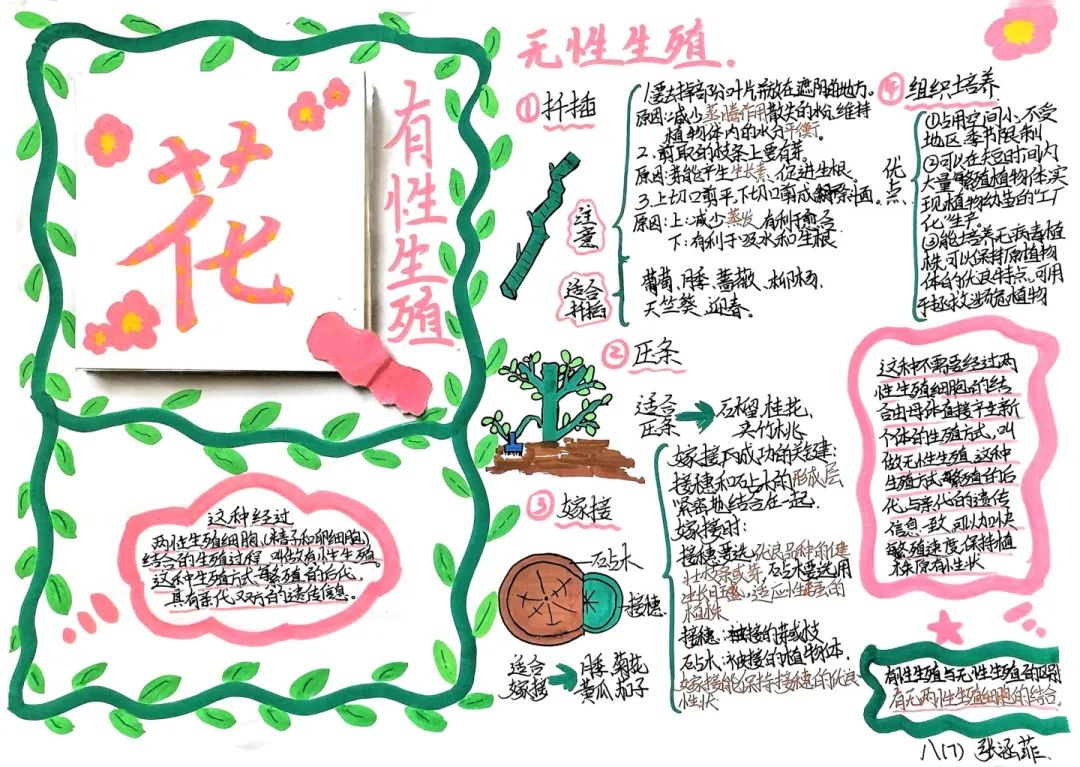 花
有性生殖
这种经过
两性生殖细胞(精子和卵细胞)
结合的生殖过程 叫做有性生殖
这种生殖方式,繁殖的后代,
具有亲代双方的遗传信息。
无性生殖.
①扦插
注意
1.要去掉部分叶片并放在遮阴的地方。
原因:减少蒸腾作用散失的水分,维持
植物体内的水分平衡.
2.剪取的枝条上要有芽。
原因:芽能产生生长素、促进生根。
3.上切口剪平,下切口剪成斜面。
原因:上:减少蒸发,有利于愈合
下:有利于吸水和生根
适合扦插
葡萄、月季、蔷薇、木柳杨、
天竺葵、迎春。
②压条
适合
压条
石榴、桂花、
夹竹桃
③嫁接
砧木
接穗
适合
嫁接
月季、菊花
黄瓜、茄子
嫁接成功的关键:
接穗和砧木的形成层
紧密地结合在一起.
嫁接时:
接穗要选优良品种的健
壮枝条或芽,砧木要选用
生长旺盛、适应性强的
植株
接穗:被接的芽或枝
砧木:被接的植物体.
嫁接能保持接穗的优良
性状
④组织培养
优点
①占用空间小、不受
地区、季节限制
②可以在短时间内
大量繁殖植物体,实
现植物幼苗的“工厂
化”生产
③能培养无病毒植
株,可以保持原植物
体的优良特点,可用
于拯救濒危植物
这种不需要经过两
性生殖细胞的结
合由母体直接产生新
个体的生殖方式,叫
做无性生殖,这种
生殖方式,繁殖的后
代,与亲代的遗传
信息一致,可以加快
繁殖速度,保持植
株原有性状
有性生殖与无性生殖的区别
有无两性生殖细胞的结合.
八(7) 张涵菲.